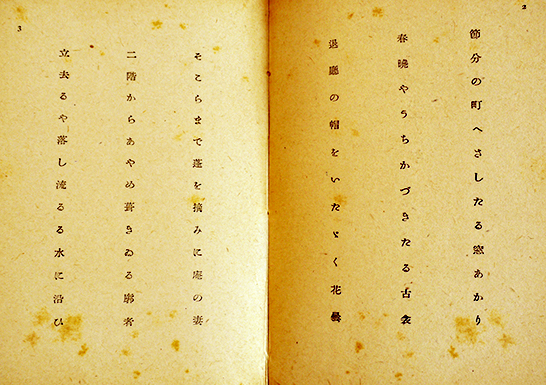 2
節分の町へさしたる窓あかり
春曉やうちかづきたる古衾
退廳の帽をいたゞく花曇
3
そこらまで蓬を摘みに庵の妻
二階からあやめ葺きゐる廓者
立去るや落し流るる水に沿ひ